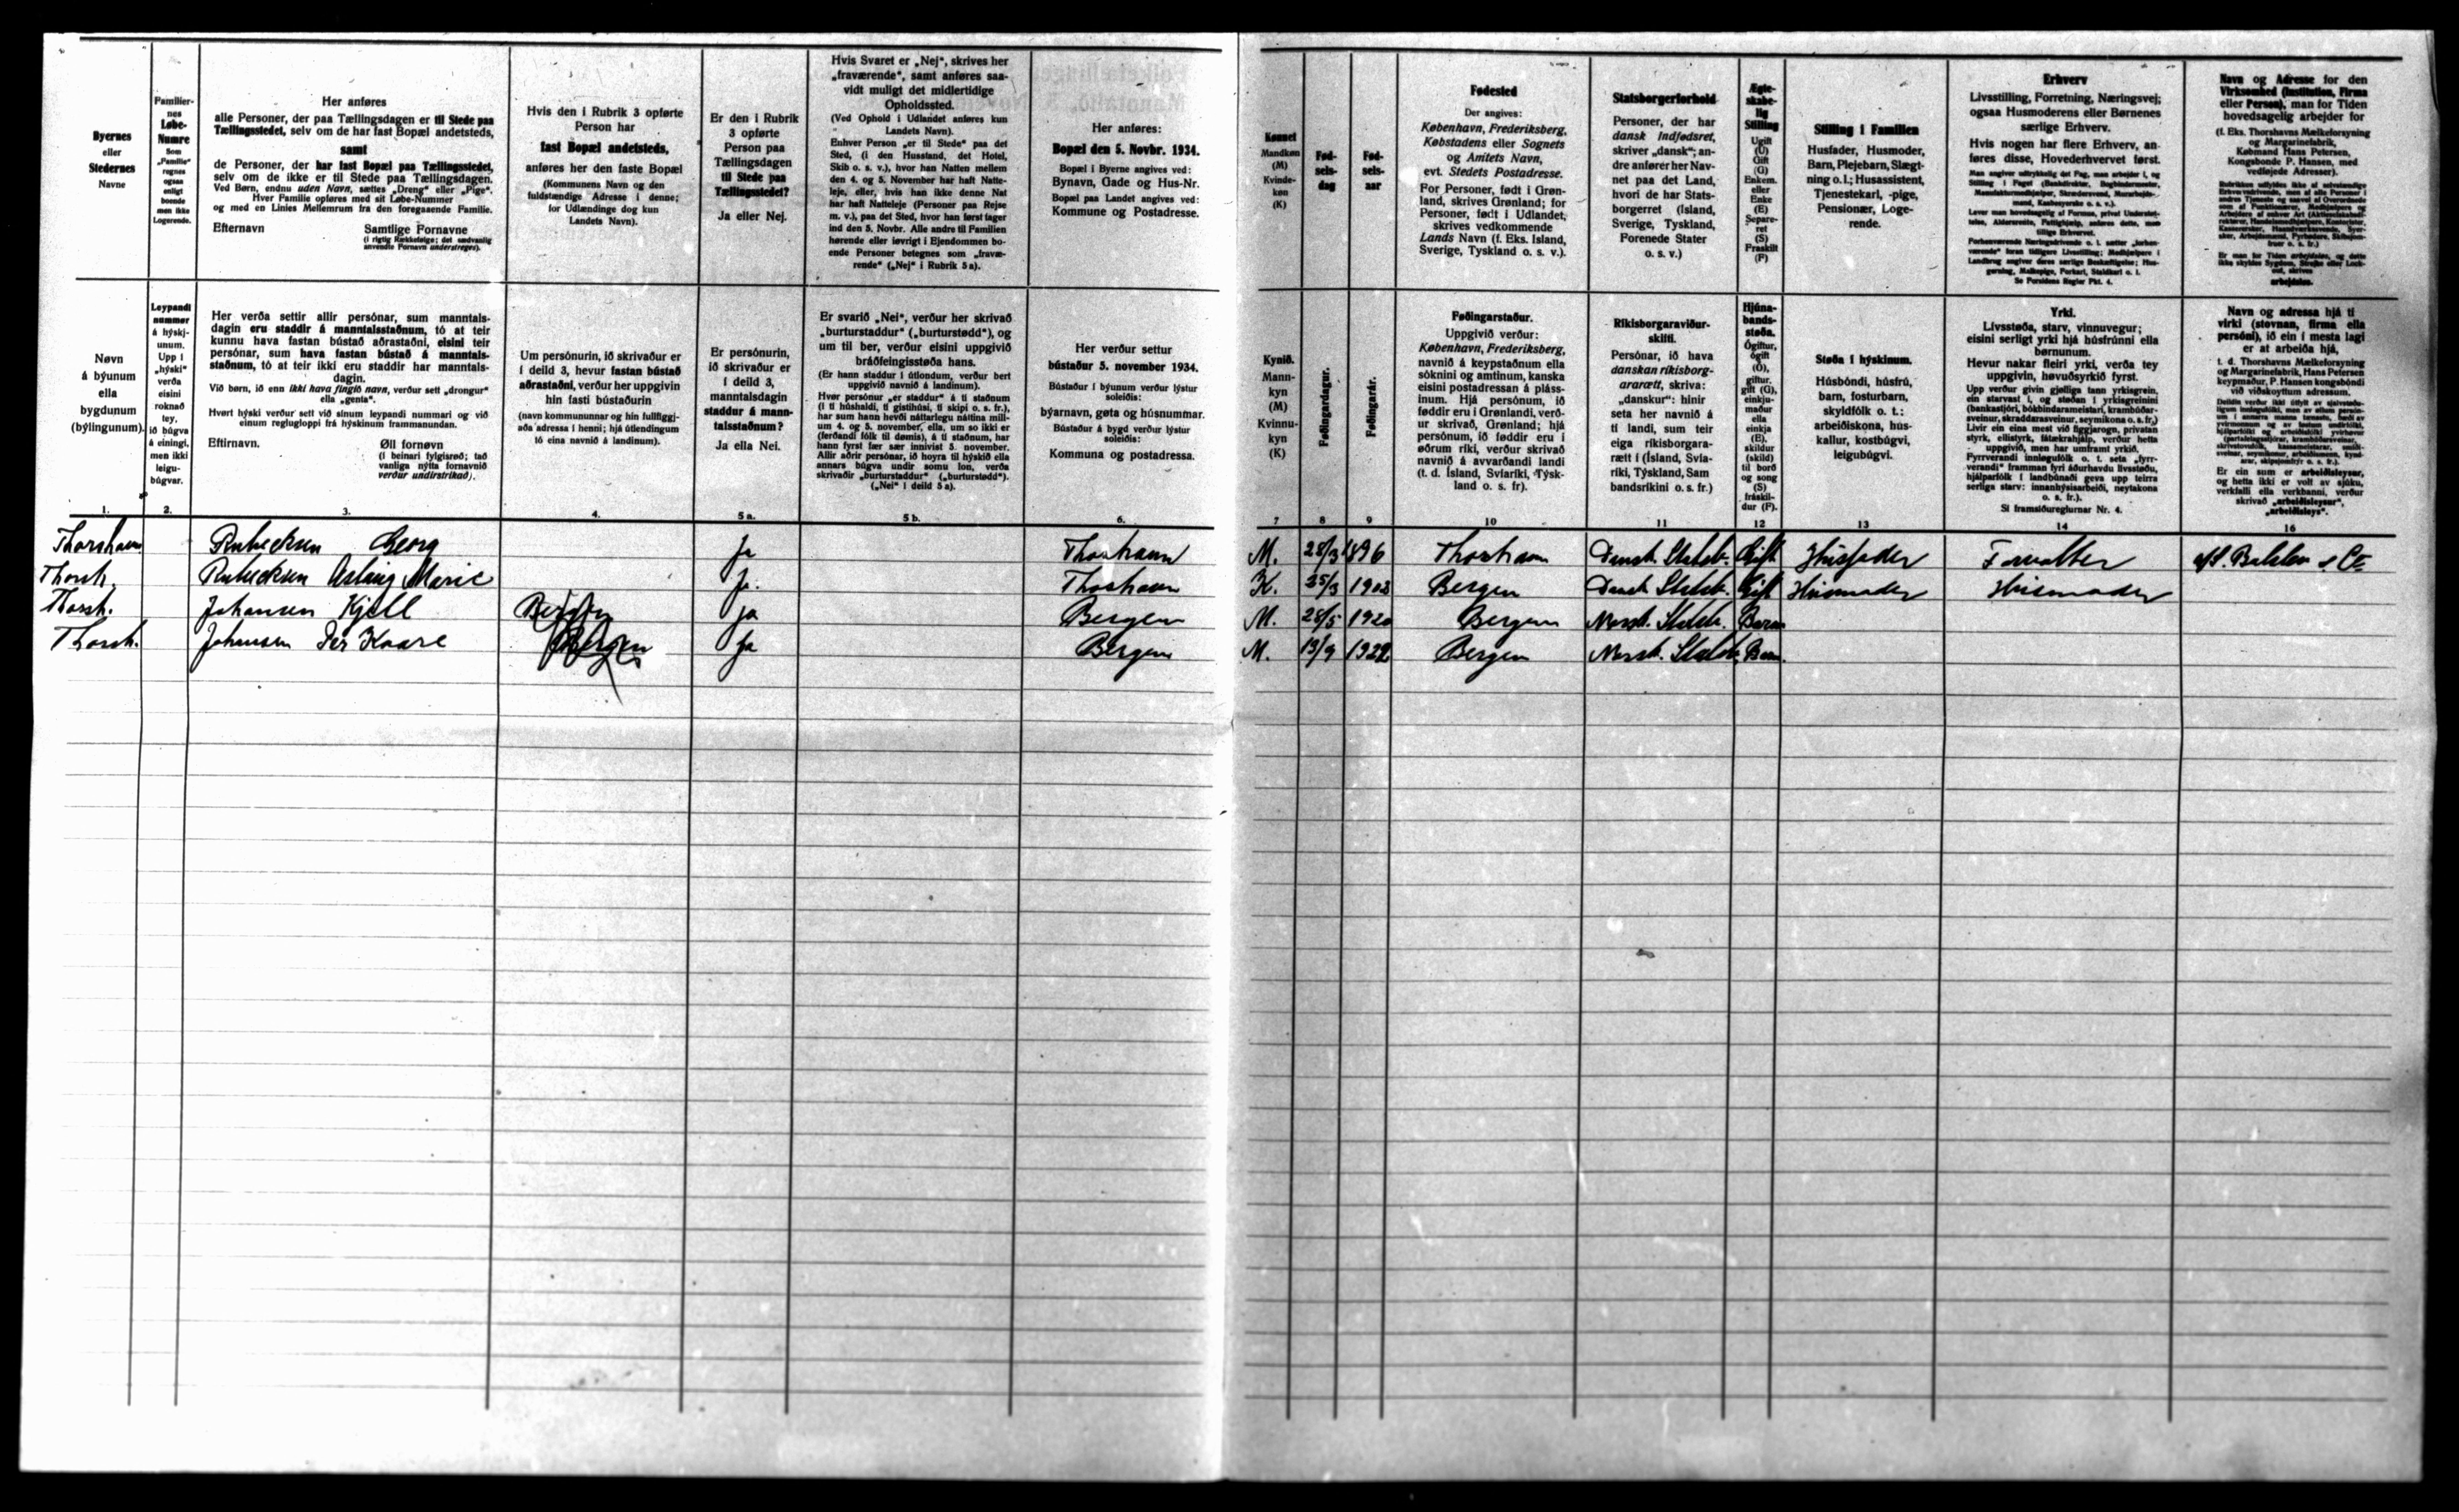 Byernes
eller
Stedernes
Navne
Familier-
nes
Løbe-
Numre
Som
„Familie“
regnes
ogsaa
enligt
boende
men ikke
Logerende.
Her anføres
alle Personer, der paa Tællingsdagen er til Stede paa
Tællingsstedet, selv om de har fast Bopæl andetsteds,
samt
de Personer, der har fast Bopæl paa Tællingsstedet,
selv om de ikke er til Stede paa Tællingsdagen.
Ved Børn, endnu uden Navn, sættes „Dreng“ eller „Pige“.
Hver Familie opføres med sit Løbe-Nummer
og med en Linies Mellemrum fra den foregaaende Familie.
Efternavn Samtlige Fornavne
(i rigtig Rækkefølge; det sædvanlig
anvendte Fornavn understreges).
Hvis den i Rubrik 3 opførte
Person har
fast Bopæl andetsteds,
anføres her den faste Bopæl
(Kommunens Navn og den
fuldstændige Adresse i denne;
for Udlændinge dog kun
Landets Navn).
Er den i Rubrik
3 opførte
Person paa
Tællingsdagen
til Stede paa
Tællingsstedet?
Ja eller Nej.
Hvis Svaret er „Nej“, skrives her
„fraværende“, samt anføres saa-
vidt muligt det midlertidige
Opholdssted.
(Ved Ophold i Udlandet anføres kun
Landets Navn).
Enhver Person „er til Stede“ paa det
Sted, (i den Husstand, det Hotel,
Skib o. s. v.), hvor han Natten mellem
den 4. og 5. November har haft Natte-
leje, eller, hvis han ikke denne Nat
har haft Natteleje (Personer paa Rejse
m. v.), paa det Sted, hvor han først tager
ind den 5. Novbr. Alle andre til Familien
hørende eller iøvrigt i Ejendommen bo-
ende Personer betegnes som „fravæ-
rende“ („Nej“ i Rubrik 5a).
Her anføres:
Bopæl den 5. Novbr. 1934.
Bopæl i Byerne angives ved:
Bynavn, Gade og Hus-Nr.
Bopæl paa Landet angives ved:
Kommune og Postadresse.
Kønnet
Mandkøn
(M)
Kvinde-
køn
(K)
Fød-
sels-
dag
Fød-
sels-
aar
Fødested
Der angives:
København, Frederiksberg,
Købstadens eller Sognets
og Amtets Navn,
evt. Stedets Postadresse.
For Personer, født i Grøn-
land, skrives Grønland; for
Personer, født i Udlandet,
skrives vedkommende
Lands Navn (f. Eks. Island,
Sverige, Tyskland o. s. v.).
Statsborgerforhold
Personer, der har
dansk Indfødsret,
skriver „dansk“; an-
dre anfører her Nav-
net paa det Land,
hvori de har Stats-
borgerret (Island,
Sverige, Tyskland,
Forenede Stater
o. s. v.)
Ægte-
skabe-
lig
Stilling
Ugift
(U)
Gift
(G)
Enkem.
eller
Enke
(E)
Separe-
ret
(S)
Fraskilt
(F)
Stilling i Familien
Husfader, Husmoder,
Barn, Plejebarn, Slægt-
ning o. l.; Husassistent,
Tjenestekarl, -pige,
Pensionær, Loge-
rende.
Erhverv
Livsstilling, Forretning, Næringsvej;
ogsaa Husmoderens eller Børnenes
særlige Erhverv.
Hvis nogen har flere Erhverv, an-
føres disse, Hovederhvervet først.
Se Forsidens Regler Pkt. 4.
Navn og Adresse for den
Virksomhed (Institution, Firma
eller Person), man for Tiden
hovedsagelig arbejder for
(f. Eks. Thorshavns Mælkeforsyning
og Margarinefabrik,
Købmand Hans Petersen,
Kongsbonde P. Hansen, med
vedføjede Adresser).
arbejdsløs.
Nøvn
á býunum
ella
bygdunum
(býlingunum).
Leypandi
nummer
á hýskj-
unum.
Upp í
„hýski“
verða
eisini
roknað
tey,
ið búgva
á einingi,
men ikki
leigu-
búgvar.
Her verða settir allir persónar, sum manntals-
dagin eru staddir á manntalsstaðnum, tó at teir
kunnu hava fastan bústað aðrastaðni, eisini teir
persónar, sum hava fastan bústað á manntals-
staðnum, tó at teir ikki eru staddir har manntals-
dagin.
Við børn, ið enn ikki hava fingið navn, verður sett „drongur“
ella „genta“.
Hvørt hýski verður sett við sínum leypandi nummari og við
einum reglugloppi frá hýskinum frammanundan.
Eftirnavn. Øll fornøvn
(í beinari fylgisrøð; tað
vanliga nýtta fornavnið
verður undirstrikað).
Um persónurin, ið skrivaður er
í deild 3, hevur fastan bústað
aðrastaðni, verður her uppgivin
hin fasti bústaðurin
(navn kommununnar og hin fullfíggj-
aða adressa í henni; hjá útlendingum
tó eina navnið á landinum).
Er persónurin,
ið skrivaður er
í deild 3,
manntalsdagin
staddur á mann-
talsstaðnum?
Ja ella Nei.
Er svarið „Nei“, verður her skrivað
„burturstaddur“ („burturstødd“), og
um til ber, verður eisini uppgivið
bráðfeingisstøða hans.
(Er hann staddur í útlondum, verður bert
uppgivið navnið á landinum).
Hvør persónur „er staddur“ á tí staðnum
(í tí húshaldi, tí gistihúsi, tí skipi o. s. fr.),
har sum hann hevði náttarlegu náttina mill-
um 4. og 5. november, ella, um so ikki er
(ferðandi fólk til dømis), á tí staðnum, har
hann fyrst fær sær innivist 5. november.
Allir aðrir persónar, ið hoyra til hýskið ella
annars búgva undir somu lon, verða
skrivaðir „burturstaddur“ („burturstødd“).
(„Nei“ í deild 5 a).
Her verður settur
bústaður 5. november 1934.
Bústaður í býunum verður lýstur
soleiðis:
býarnavn, gøta og húsnummar.
Bústaður á bygd verður lýstur
soleiðis:
Kommuna og postadressa.
Kynið.
Mann-
kyn
(M)
Kvinnu-
kyn
(K)
Føðingardagur.
Føðingarár.
Føðingarstaður.
Uppgivið verður:
København, Frederiksberg,
navnið á keypstaðnum ella
sóknini og amtinum, kanska
eisini postadressan á pláss-
inum. Hjá persónum, ið
føddir eru í Grønlandi, verð-
ur skrivað, Grønland; hjá
persónum, ið føddir eru í
øðrum ríki, verður skrivað
navnið á avvarðandi landi
(t. d. Ísland, Svíaríki, Týsk-
land o. s. fr).
Ríkisborgaraviður-
skifti.
Persónar, ið hava
danskan ríkisborg-
ararætt, skriva:
„danskur“: hinir
seta her navnið á
tí landi, sum teir
eiga ríkisborgara-
rætt í (Ísland, Svía-
ríki, Týskland, Sam
bandsríkini o. s. fr.)
Hjúna-
bands-
støða.
Ógiftur,
ógift
(O),
giftur,
gift (G),
einkju-
maður
ella
einkja
(E),
skildur
(skild)
til borð
og song
(S)
fráskil-
dur (F).
Støða í hýskinum.
Húsbóndi, húsfrú,
barn, fosturbarn,
skyldfólk o. t.:
arbeiðiskona, hús-
kallur, kostbúgvi,
leigubúgvi.
Yrki.
Livsstøða, starv, vinnuvegur;
eisini serligt yrki hjá hústrúnni ella
børnunum.
Hevur nakar fleiri yrki, verða tey
uppgivin, høvuðsyrkið fyrst.
Sí framsíðureglurnar Nr. 4.
Navn og adressa hjá tí
virki (stovnan, firma ella
persóni), ið ein í mesta lagi
er at arbeiða hjá,
t. d. Thorshavns Mælkeforsyning
og Margarinefabrik, Hans Petersen
keypmaður, P. Hansen kongsbóndi
við viðskoyttum adressum.
Er ein sum er arbeiðisleysur,
og hetta ikki er volt av sjúku,
verkfalli ella verkbanni, verður
skrivað „arbeiðisleysur“,
„arbeiðisleys“.
1. 2. 3. 4. 5 a. 5 b. 6. 7 8 9 10 11 12 13 14 16
Thorshavn Rubecksen Georg Ja Thorshavn M. 28/3 1896 Thorshavn Dansk Statsb. Gift Husfader Forvalter
Thorsh. Rubecksen Marie Ja. Thorshavn K. 25/3 1903 Bergen Dansk Statsb. Gift Husmoder Husmoder
Thorsh. Johansen Kjell Bergen Ja Bergen M. 28/5 1920 Bergen Norsk. Statsb. Barn
Thorsh. Johansen Per Kaare Bergen Ja Bergen M. 13/9 1922 Bergen Norsk. Statsb. Barn.